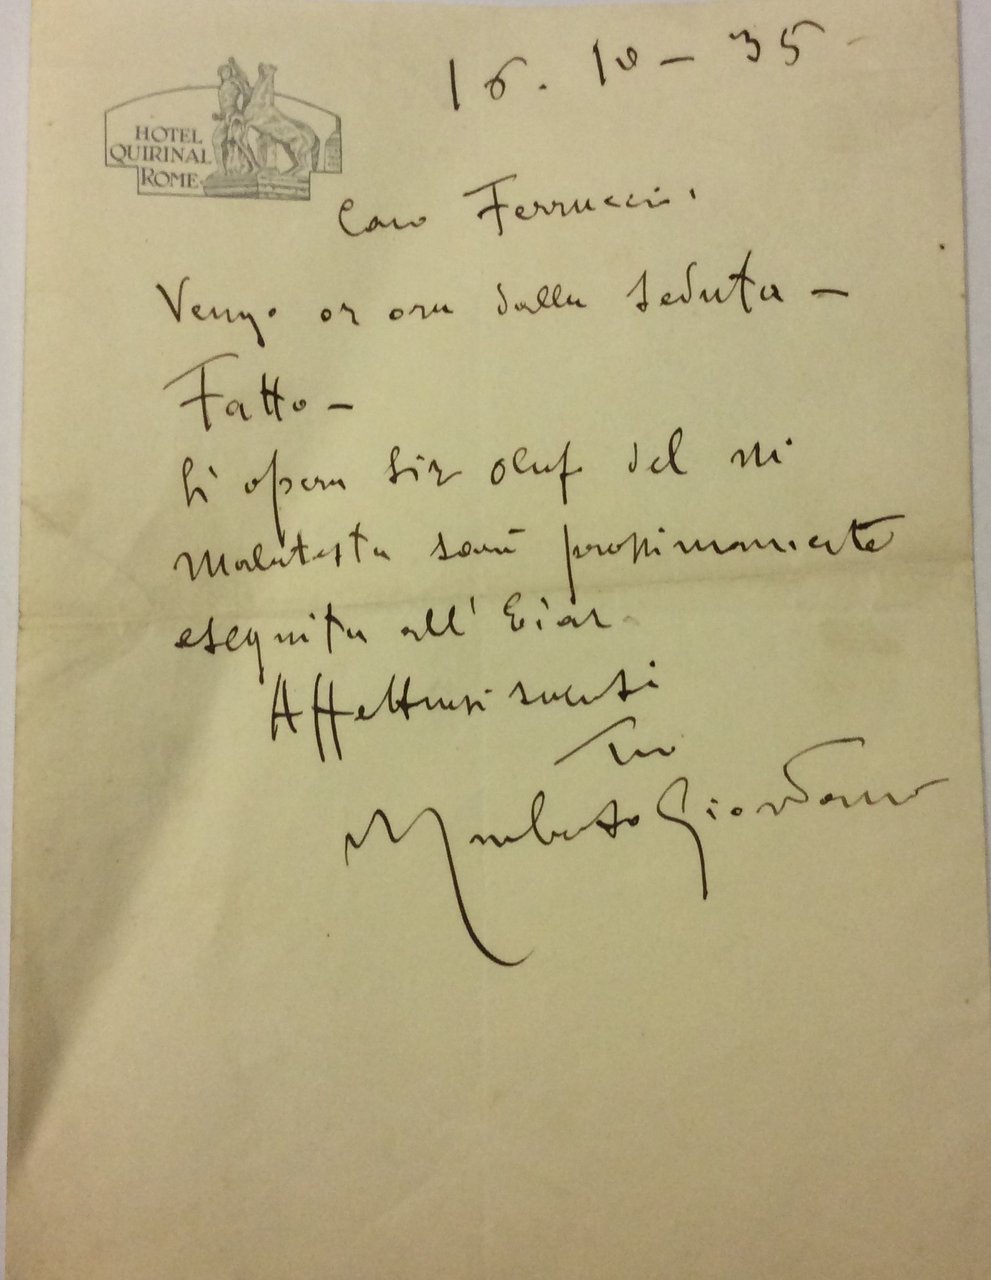 HOTEL
QUIRINAL
ROME
16. 10 - 35 -
Caro Ferruccio,
Vengo or ora dalla seduta -
Fatto -
L'opera Sir Oluf del M°
Malatesta sarà prossimamente
eseguita all'Eiar.
Affettuosi saluti
Tuo
Umberto Giordano